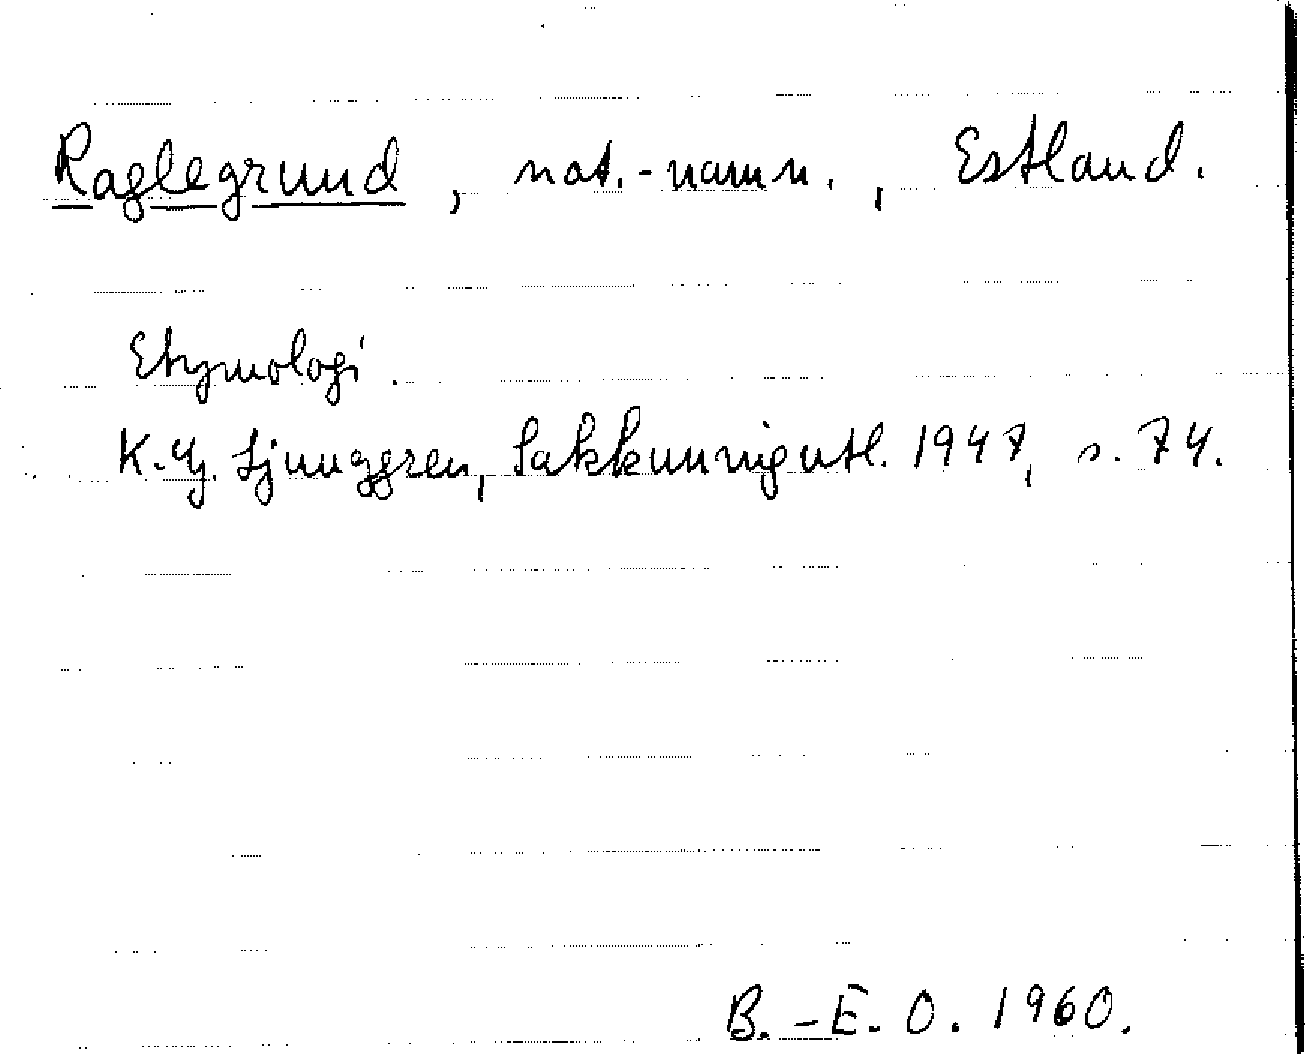 Raglegrund, nat.-namn., Estland.
Etymologi.
K.G. Ljunggren, Sakkunnigutl. 1947, s. 74.
B.-E. O. 1960.